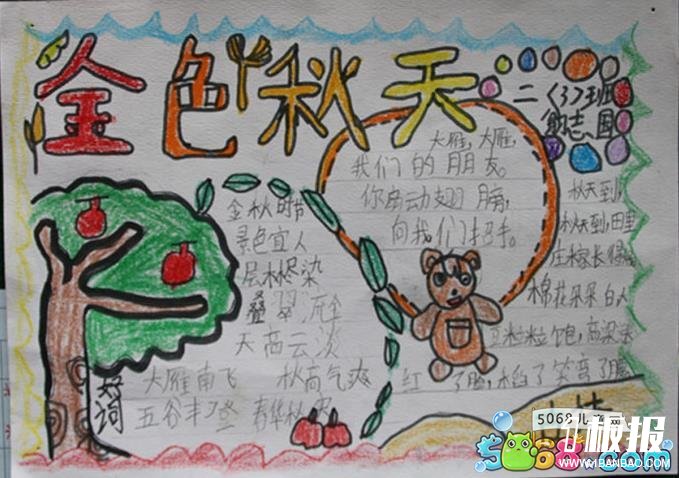 金色秋天
二〈3〉班
大雁,大雁,
我们的朋友。
你扇动翅膀,
向我们招手。
金秋时节
景色宜人
层林尽染
叠翠流金
天高云淡
大雁南飞 秋高气爽
好词
五谷丰登 春华秋实
秋天到,
秋天到,田里
庄稼长得
棉花朵朵白
豆粒粒饱,高粱
红了脸,稻子笑弯了腰
5068儿童网
板报
www.41BANBAO.COM
5068.com